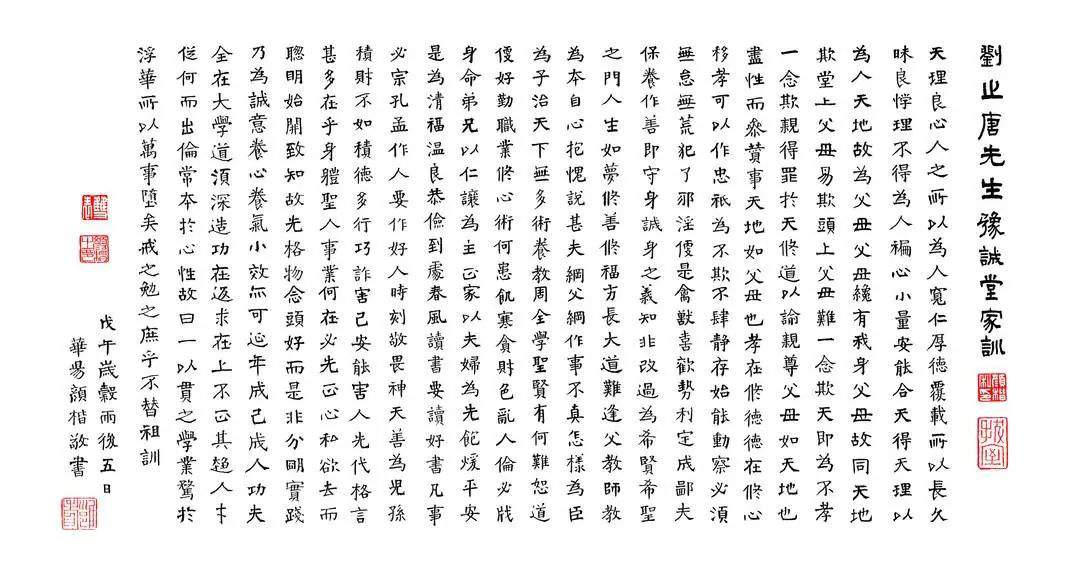 劉止唐先生豫誠堂家訓
天理良心人之所以為人寬仁厚德覆載所以長久
昧良悖理不得為人褊心小量安能合天得天理以
為人天地故為父母父母纔有我身父母故同天地
欺堂上父母易欺頭上父母難一念欺天即為不孝
一念欺親得罪於天修道以諭親尊父母如天地也
盡性而叅贊事天地如父母也孝在修德德在修心
移孝可以作忠祇為不欺不肆靜存始能動察必須
無怠無荒犯了邪淫便是禽獸喜歡勢利定成鄙夫
保養作善即守身誠身之義知非改過為希賢希聖
之門人生如夢修善修福方長大道難逢父教師教
為本自心抱愧說甚夫綱父綱作事不真怎樣為臣
為子治天下無多術養教周全學聖賢有何難恕道
便好勤職業修心術何患飢寒貪財色亂人倫必戕
身命弟兄以仁讓為主正家以夫婦為先飽煖平安
是為清福溫良恭儉到處春風讀書要讀好書凡事
必宗孔孟作人要作好人時刻敬畏神天善為兒孫
積財不如積德多行巧詐害己安能害人先代格言
甚多在乎身體聖人事業何在必先正心私欲去而
聰明始開致知故先格物念頭好而是非分明實踐
乃為誠意養心養氣小效亦可延年成己成人功夫
全在大學道須深造功在返求在上不正其趨人才
從何而出倫常本於心性故曰一以貫之學業騖於
浮華所以萬事墮矣戒之勉之庶乎不替祖訓
戊午歲穀雨後五日
華陽顏楷敬書